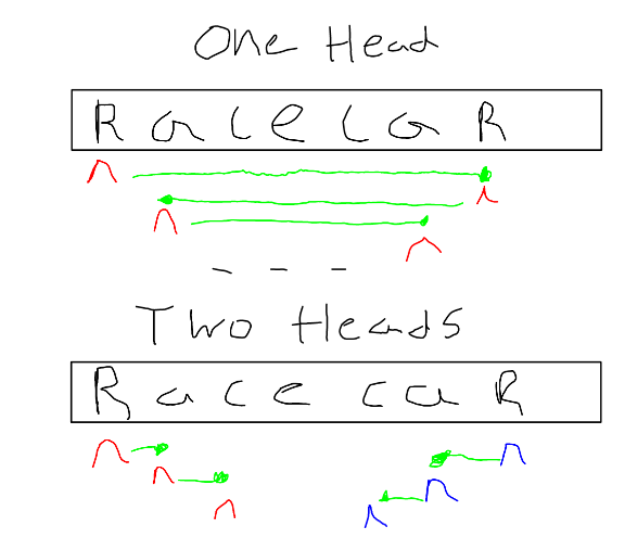 One Head
Racecar
- - -
Two Heads
Racecar